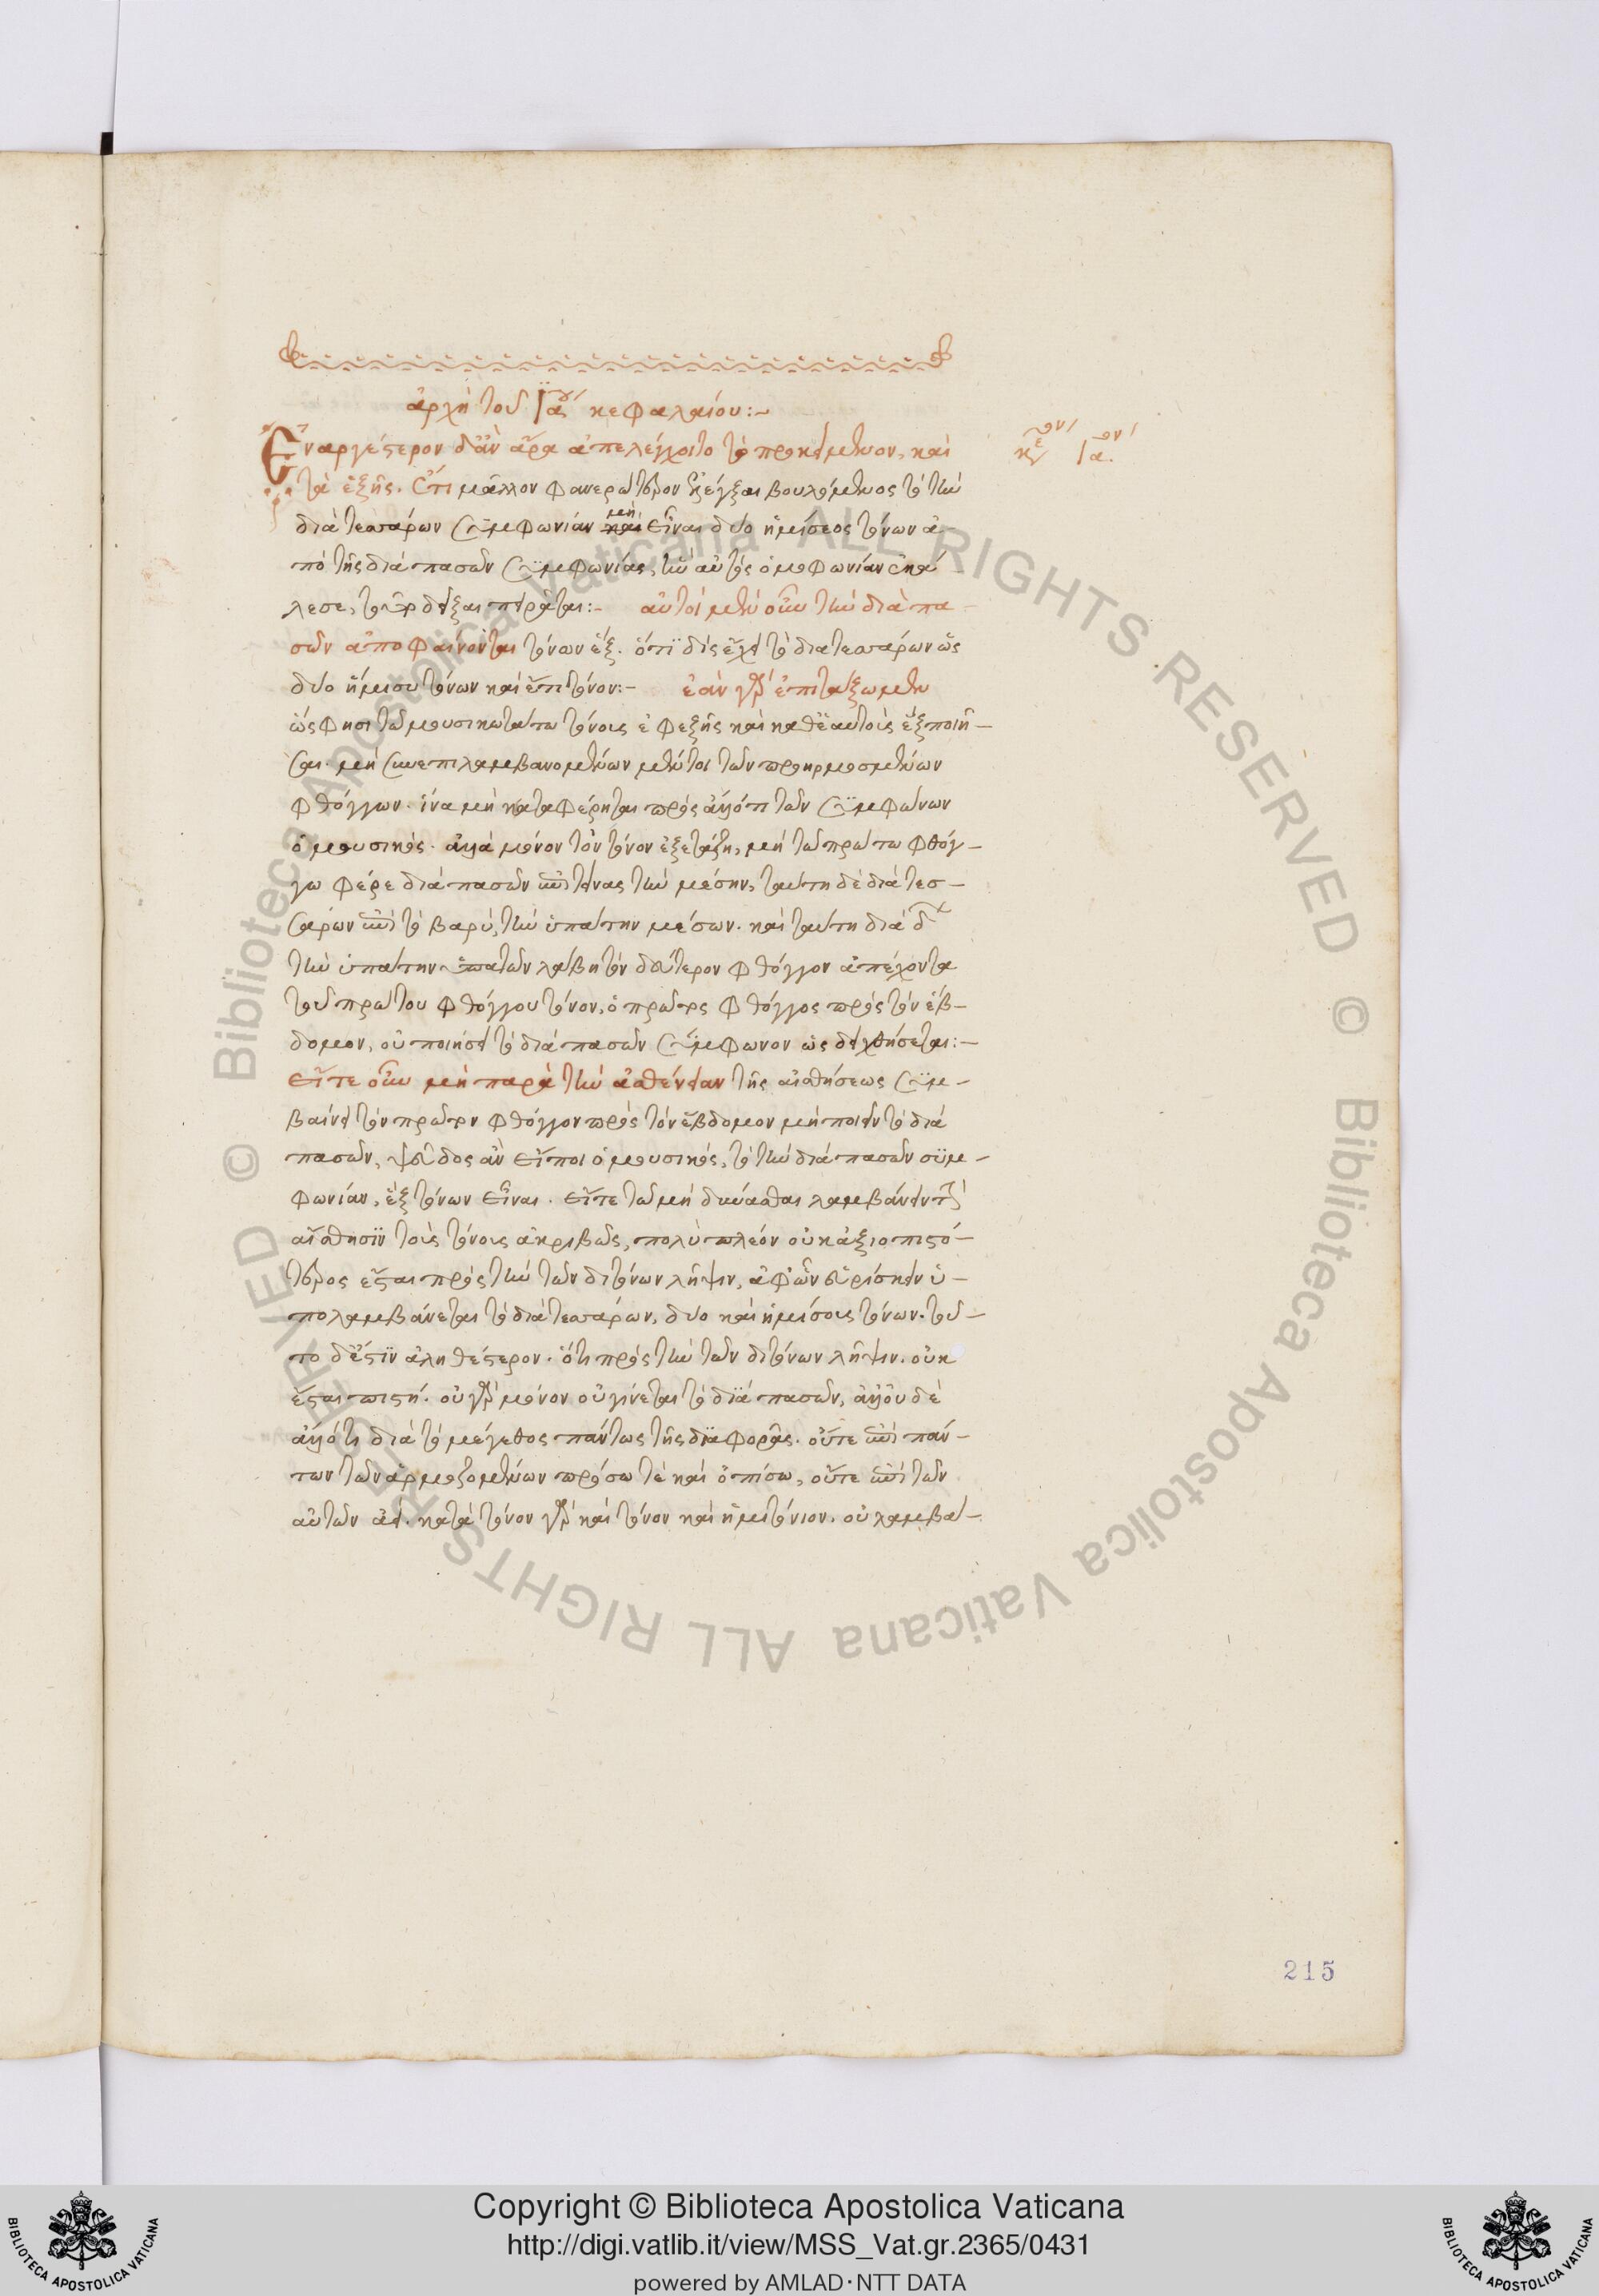 ἀρχὴ τοῦ ια΄ου κεφαλαίου:~
Ἐναργέστερον δ' ἂν ἄρα ἀπελέγχοιτο τὸ προκείμενον, καὶ
κε΄ον ια΄ον
τὰ ἑξῆς. Ἔτι μᾶλλον φανερώτερον ἐλέγξαι βουλόμενος τὸ τὴν
διὰ τεσσάρων συμφωνίαν μὴ εἶναι δύο ἡμίσεος τόνων ἀ-
πὸ τῆς διὰ πασῶν συμφωνίας, ἣν αὐτὸς ὁμοφωνίαν ἐκά-
λεσε, τοῦτο δεῖξαι πειρᾶται:- αὐτοὶ μὲν οὖν τὴν διὰ πα-
σῶν ἀποφαίνονται τόνων ἕξ. ὅτι δὶς ἔχει τὸ διὰ τεσσάρων ὡς
δύο ἥμισυ τόνων καὶ ἔτι τόνον:- ἐὰν γὰρ ἐπιτάξωμεν
ὥς φησι τῷ μουσικωτάτω τόνους ἐφεξῆς καὶ καθ' ἑαυτοὺς ἓξ ποιῆ-
σαι. μὴ συνεπιλαμβανομένων μέντοι τῶν προηρμοσμένων
φθόγγων. ἵνα μὴ καταφέρηται πρὸς ἄλλό τι τῶν συμφώνων
ὁ μουσικός. ἀλλὰ μόνον τὸν τόνον ἐξετάζη, μὴ τῷ πρώτω φθόγ-
γω φέρε διὰ πασῶν ἐπιτείνας τὴν μέσην, ταύτη δὲ διὰ τεσ-
σάρων ἐπὶ τὸ βαρύ, τὴν ὑπάτην μέσων. καὶ ταύτη διὰ δ
τὴν ὑπάτην ὑπατῶν λάβη τὸν δεύτερον φθόγγον ἀπέχοντα
τοῦ πρώτου φθόγγου τόνον, ὁ πρῶτος φθόγγος πρὸς τὸν ἕβ-
δομον, οὐ ποιήσει τὸ διὰ πασῶν σύμφωνον ὡς δειχθήσεται:-
Εἴτε οὖν μὴ παρὰ τὴν ἀσθένειαν τῆς αἰσθήσεως συμ-
βαίνει τὸν πρῶτον φθόγγον πρὸς τὸν ἕβδομον μὴ ποιεῖν τὸ διὰ
πασῶν, ψεῦδος ἂν εἴποι ὁ μουσικός, τὸ τὴν διὰ πασῶν συμ-
φωνίαν, ἓξ τόνων εἶναι. εἴτε τῷ μὴ δύνασθαι λαμβάνειν τὴν
αἴσθησιν τοὺς τόνους ἀκριβῶς, πολὺ πλέον οὐκ ἀξιοπιστό-
τερος ἔσται πρὸς τὴν τῶν διτόνων λῆψιν, ἀφ' ὧν εὑρίσκειν ὑ-
πολαμβάνεται τὸ διὰ τεσσάρων, δύο καὶ ἡμίσους τόνων. τοῦ-
το δ' ἔστιν ἀληθέστερον. ὅτι πρὸς τὴν τῶν διτόνων λῆψιν. οὐκ
ἔσται πιστή. οὐ γὰρ μόνον οὐ γίνεται τὸ διὰ πασῶν, ἀλλ' οὐδὲ
ἄλλό τι διὰ τὸ μέγεθος πάντως τῆς διαφορᾶς. οὔτε ἐπὶ πάν-
των τῶν ἁρμοζομένων πρόσω τὲ καὶ ὀπίσω, οὔτε ἐπὶ τῶν
αὐτῶν ἀεί. κατὰ τόνον γὰρ καὶ τόνον καὶ ἡμιτόνιον. οὐ λαμβά-
215
Copyright © Biblioteca Apostolica Vaticana
http://digi.vatlib.it/view/MSS_Vat.gr.2365/0431
powered by AMLAD·NTT DATA
BIBLIOTECA APOSTOLICA VATICANA
BIBLIOTECA APOSTOLICA VATICANA
© Biblioteca Apostolica Vaticana ALL RIGHTS RESERVED © Biblioteca Apostolica Vaticana ALL RIGHTS RESERVED